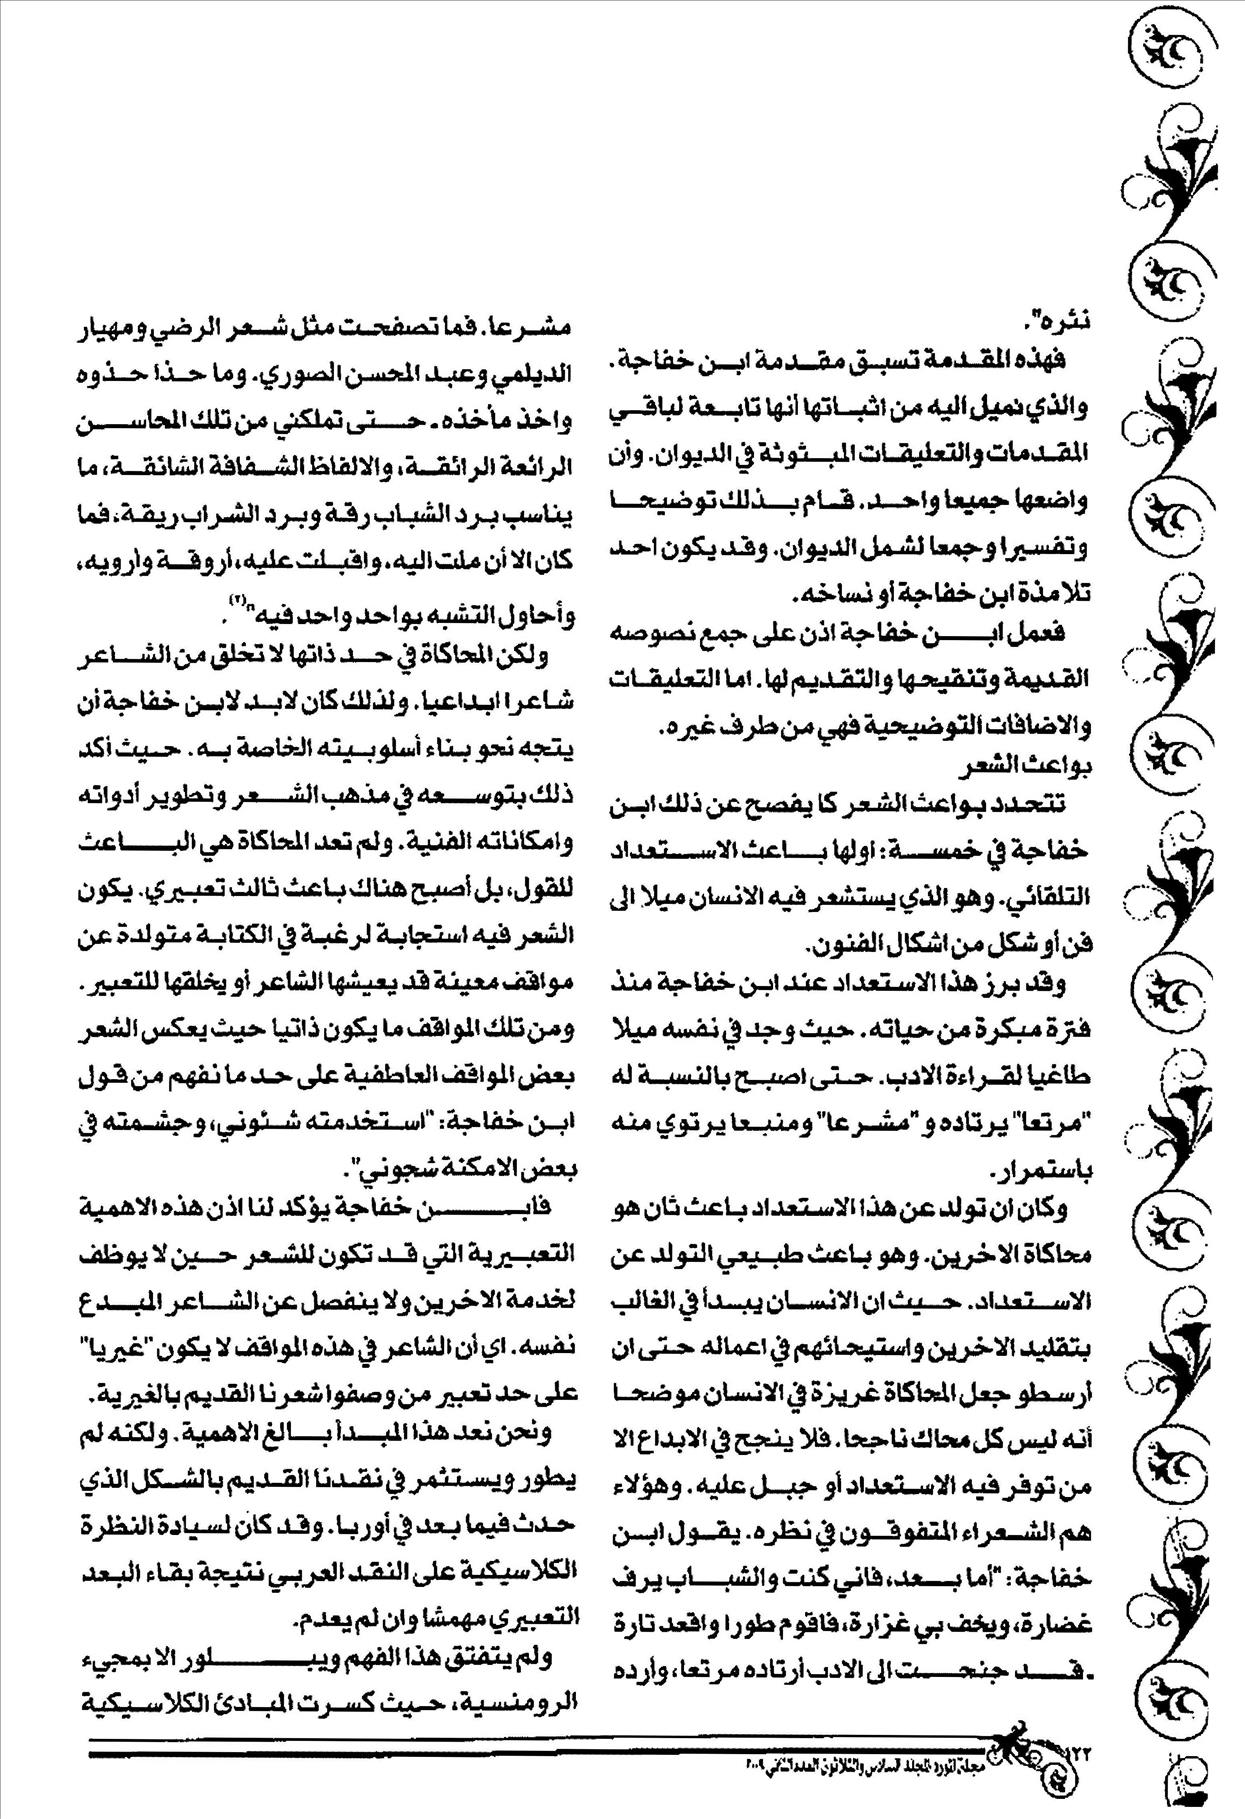 نثره".
فهذه المقدمة تسبق مقدمة ابن خفاجة.
والذي نميل اليه من اثباتها أنها تابعة لباقي
المقدمات والتعليقات المبثوثة في الديوان. وأن
واضعها جميعا واحد. قام بذلك توضيحا
وتفسيرا وجمعا لشمل الديوان. وقد يكون احد
تلامذة ابن خفاجة أو نساخه.
فعمل ابن خفاجة اذن على جمع نصوصه
القديمة وتنقيحها والتقديم لها. اما التعليقات
والاضافات التوضيحية فهي من طرف غيره.
بواعث الشعر
تتحدد بواعث الشعر كا يفصح عن ذلك ابن
خفاجة في خمسة: اولها باعث الاستعداد
التلقائي. وهو الذي يستشعر فيه الانسان ميلا الى
فن أو شكل من اشكال الفنون.
وقد برز هذا الاستعداد عند ابن خفاجة منذ
فترة مبكرة من حياته. حيث وجد في نفسه ميلا
طاغيا لقراءة الادب. حتى اصبح بالنسبة له
"مرتعا" يرتاده و "مشرعا" ومنبعا يرتوي منه
باستمرار.
وكان ان تولد عن هذا الاستعداد باعث ثان هو
محاكاة الاخرين. وهو باعث طبيعي التولد عن
الاستعداد. حيث ان الانسان يبدأ في الغالب
بتقليد الاخرين واستيحائهم في اعماله حتى ان
أرسطو جعل المحاكاة غريزة في الانسان موضحا
أنه ليس كل محاك ناجحا. فلا ينجح في الابداع الا
من توفر فيه الاستعداد أو جبل عليه. وهؤلاء
هم الشعراء المتفوقون في نظره. يقول ابن
خفاجة: "أما بعد، فاني كنت والشباب يرف
غضارة، ويخف بي غزارة، فاقوم طورا واقعد تارة
. قد جنحت الى الادب أرتاده مرتعا، وأرده
مشرعا. فما تصفحت مثل شعر الرضي ومهيار
الديلمي وعبد المحسن الصوري. وما حذا حذوه
واخذ مأخذه. حتى تملكني من تلك المحاسن
الرائعة الرائقة، والالفاظ الشفافة الشائقة، ما
يناسب برد الشباب رقة وبرد الشراب ريقة، فما
كان الا أن ملت اليه، واقبلت عليه، أروقة وأرويه،
وأحاول التشبه بواحد واحد فيه"(٢).
ولكن المحاكاة في حد ذاتها لا تخلق من الشاعر
شاعرا ابداعيا. ولذلك كان لابد لابن خفاجة أن
يتجه نحو بناء أسلوبيته الخاصة به. حيث أكد
ذلك بتوسعه في مذهب الشعر وتطوير أدواته
وامكاناته الفنية. ولم تعد المحاكاة هي الباعث
للقول، بل أصبح هناك باعث ثالث تعبيري. يكون
الشعر فيه استجابة لرغبة في الكتابة متولدة عن
مواقف معينة قد يعيشها الشاعر أو يخلقها للتعبير.
ومن تلك المواقف ما يكون ذاتيا حيث يعكس الشعر
بعض المواقف العاطفية على حد ما نفهم من قول
ابن خفاجة: "استخدمته شئوني، وجشمته في
بعض الامكنة شجوني".
فابن خفاجة يؤكد لنا اذن هذه الاهمية
التعبيرية التي قد تكون للشعر حين لا يوظف
لخدمة الاخرين ولا ينفصل عن الشاعر المبدع
نفسه. اي أن الشاعر في هذه المواقف لا يكون "غيريا"
على حد تعبير من وصفوا شعرنا القديم بالغيرية.
ونحن نعد هذا المبدأ بالغ الاهمية. ولكنه لم
يطور ويستثمر في نقدنا القديم بالشكل الذي
حدث فيما بعد في أوربا. وقد كان لسيادة النظرة
الكلاسيكية على النقد العربي نتيجة بقاء البعد
التعبيري مهمشا وان لم يعدم.
ولم يتفتق هذا الفهم ويبلور الا بمجيء
الرومنسية، حيث كسرت المبادئ الكلاسيكية
١٢٢
مجلة المورد المجلد السادس والثلاثون العدد الثاني ٢٠٠٩